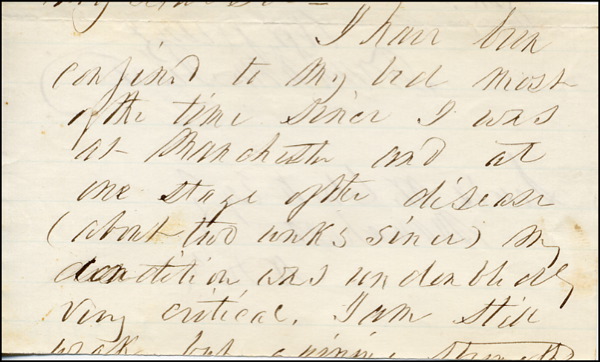 My dear Sir –
I have been
confined to my bed most
of the time since I was
at Manchester and at
one stage of the disease
(about two weeks since) my
condition was undoubtedly
very critical. I am still
weak but gaining strength